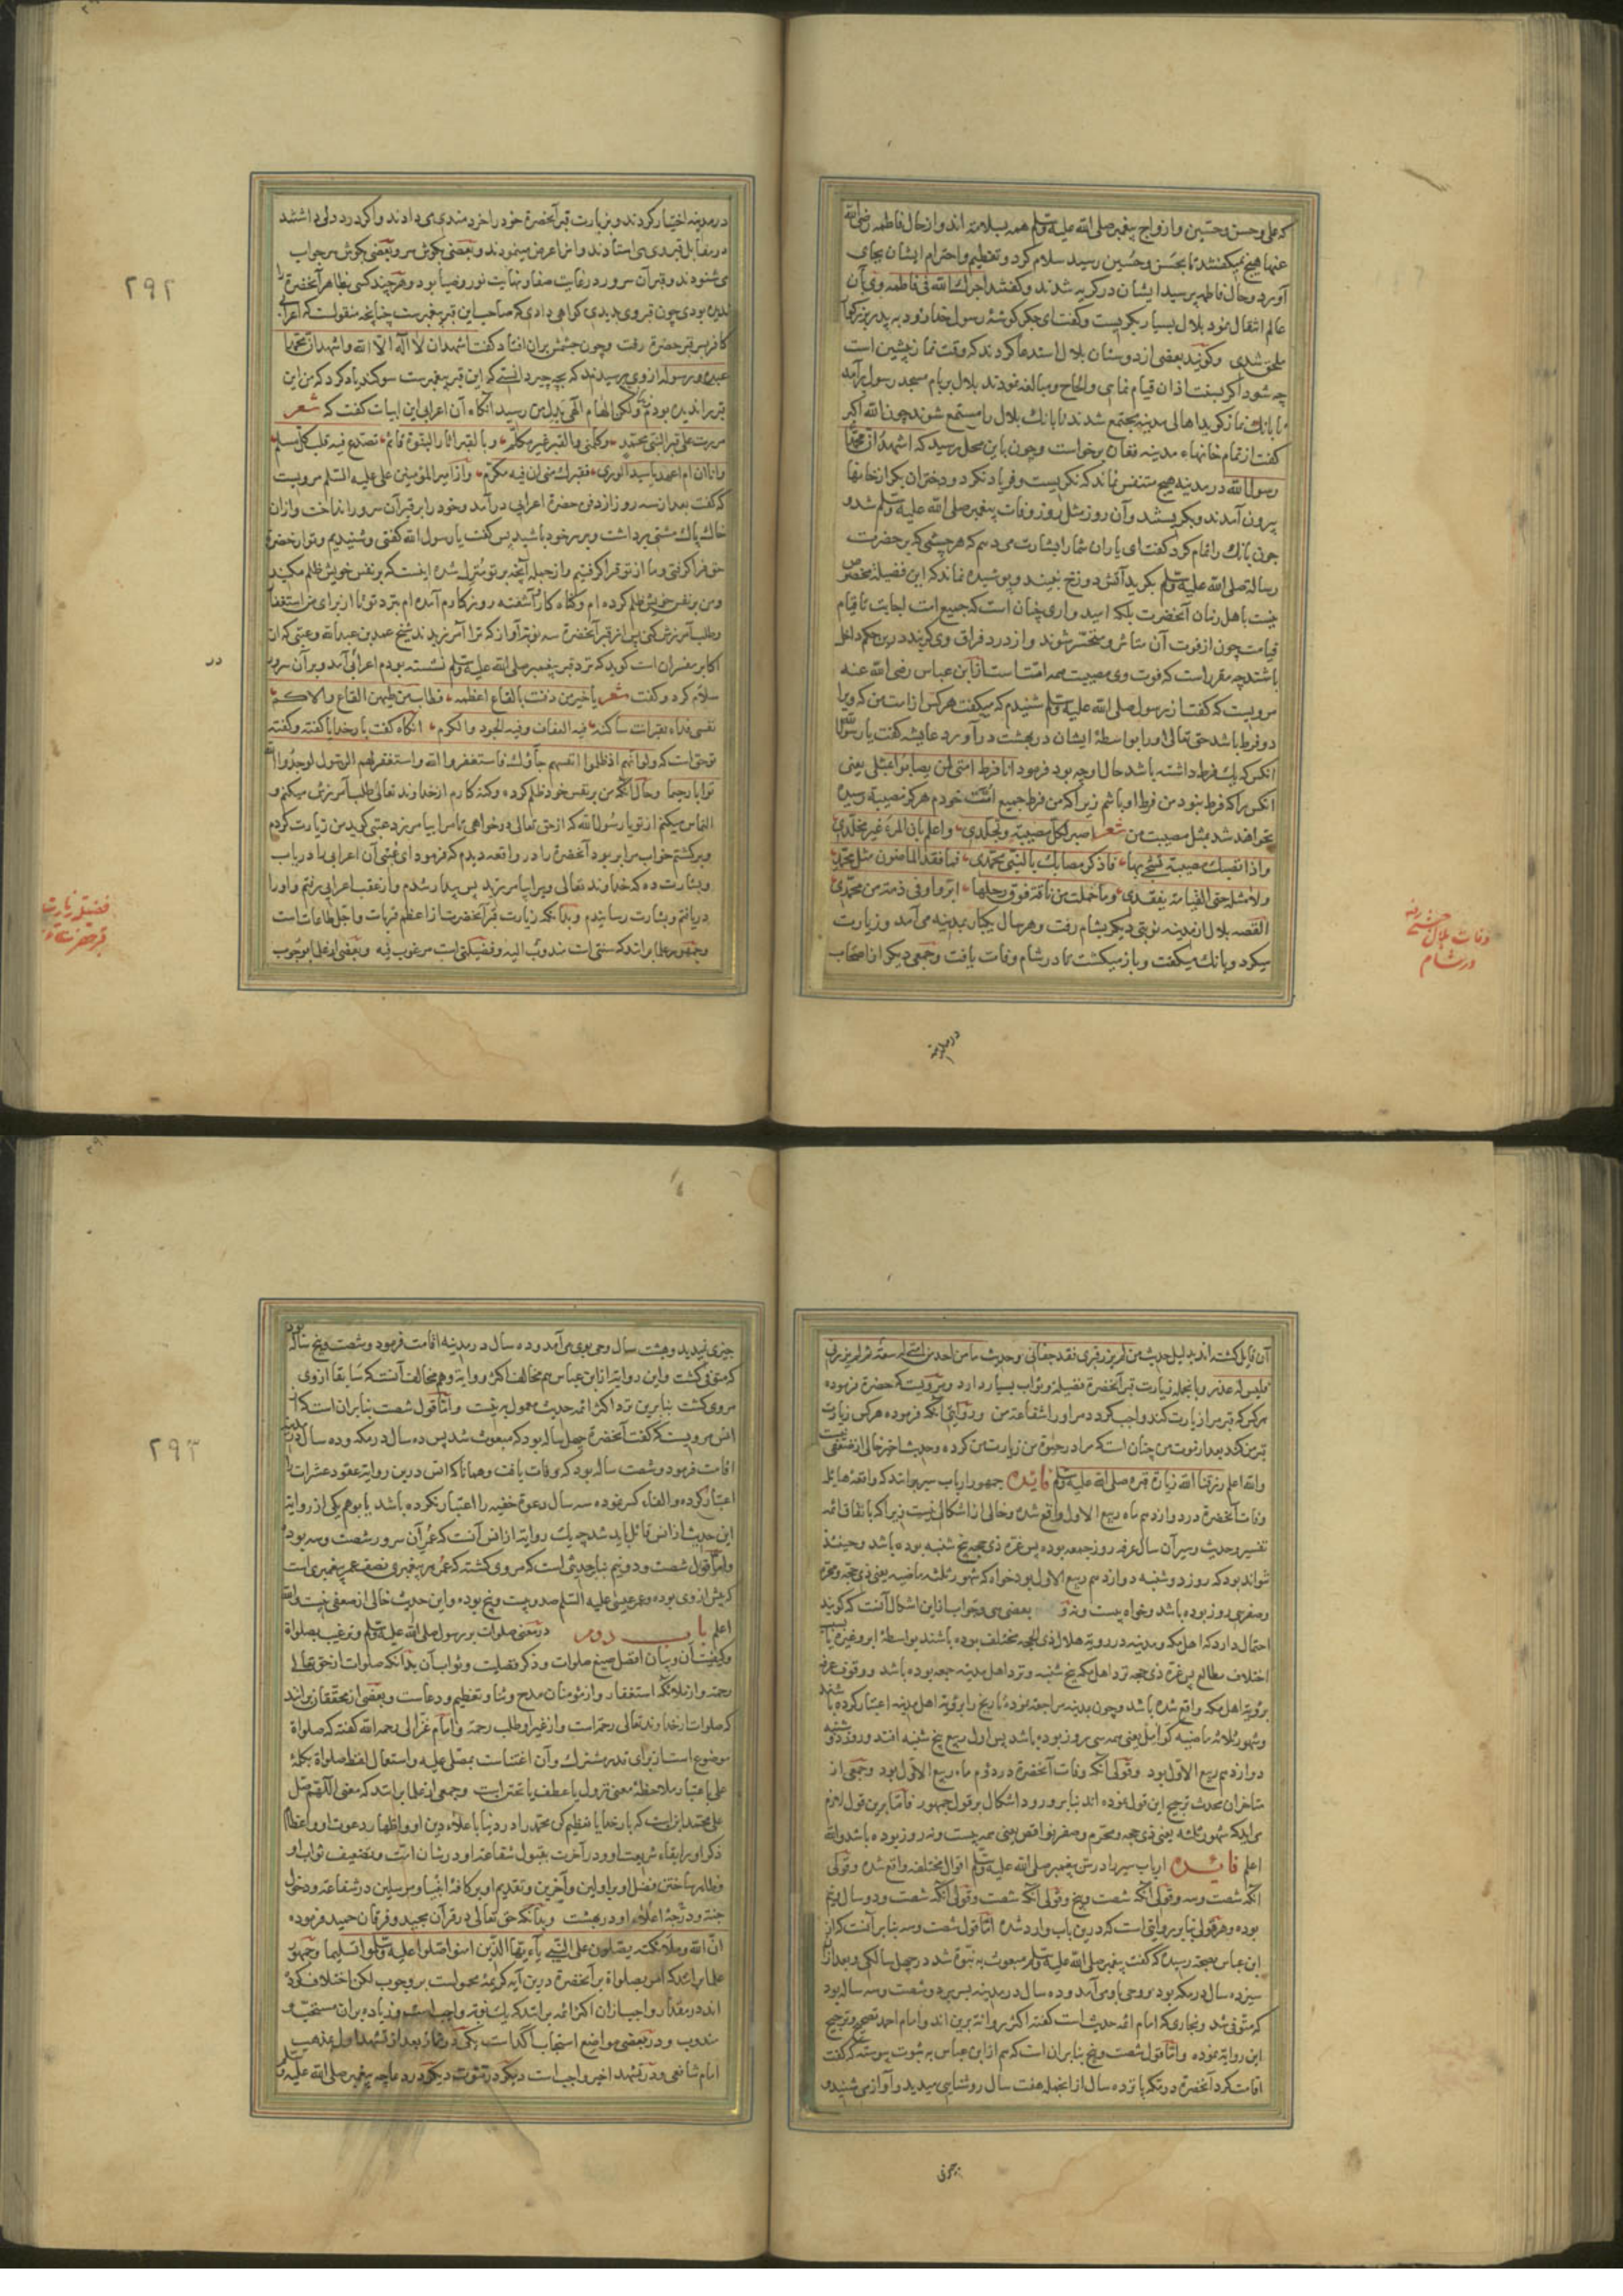 که علی و حسن و حسین و ازواج پیغمبر صلی الله علیه وسلم همه بسلامت اند و از حال فاطمه رضی الله
عنها هیچ نمیگفتند تا بحسن و حسین رسید سلام کرد و تعظیم و احترام ایشان بجای
آورد و حال فاطمه پرسید ایشان در گریه شدند و گفتند اجرک الله فی فاطمه وی بآن
عالم انتقال نمود بلال بسیار بگریست و گفت ای جگر گوشهٔ رسول خدا زود به پدر بزرگوار
ملحق شدی و گویند بعضی از دوستان بلال استدعا کردند که وقت نماز پیشین است
چه شود اگر لبنت اذان قیام نمایی و الحاح و مبالغه نمودند بلال بر بام مسجد رسول برآمد
تا بانک نماز گوید اهالی مدینه مجتمع شدند تا بانک بلال را مستمع شوند چون الله اکبر
گفت از تمام خانهاء مدینه فغان برخواست و چون باین محل رسید که اشهد ان محمدا
رسول الله در مدینه هیچ متنفس نماند که نگریست و فریاد نکرد و دختران بکر از خانها
بیرون آمدند و بگریستند و آن روز مثل روز وفات پیغمبر صلی الله علیه وسلم شد و
چون بانک را تمام کرد گفت ای یاران شما را بشارت می دهم که هر چشمی که بر حضرت
رسالة صلی الله علیه وسلم بگرید آتش دوزخ نبیند و پوشیده نماند که این فضیلة مخصوص
نیست باهل زمان آنحضرت بلکه امید واری چنان است که جمیع امت اجابت تا قیام
قیامت چون از فوت آن متاثر و متحسر شوند و از درد فراق وی گریند درین حکم داخل
باشند چه مقرر است که فوت وی مصیبت همه امت است از ابن عباس رضی الله عنه
مرویست که گفت از رسول صلی الله علیه وسلم شنیدم که میگفت هر کس از امت من که ویرا
دو فرط باشد حق تعالی او را بواسطهٔ ایشان در بهشت در آورد عایشه گفت یا رسول الله
انکس که یک فرط داشته باشد حال او چه بود فرمود انا فرط امتی لن یصابوا بمثلی یعنی
انکس را که فرط نبود من فرط او باشم زیرا که من فرط جمیع امت خودم هرگز مصیبة رسیده
نخواهد شد بمثل مصیبت من شعر اصبر لکل مصیبة وتجلدی واعلم بان المرء غیر مخلدی
واذا اتتک مصیبة تشجی بها فاذکر مصابک بالنبی محمدی فما فقد الماضون مثل محمد
ولا مثل حتی القیامة یفقدی وما حملت من ناقة فوق رحلها ابر واوفی ذمة من محمدی
القصه بلال از مدینه نوبتی دیگر بشام رفت و هر سال یکبار بمدینه می آمد و زیارت
میکرد و بانک میگفت و باز میگشت تا در شام وفات یافت و جمعی دیگر از اصحاب
وفات بلال حبشی رضه
در شام
در مدینه
۲۹۲
در مدینه اختیار کردند و بزیارت قبر آنحضرة خود را خرسندی می دادند و اگر درد دلی داشتند
در مقابل قبر وی می استادند و اعراض مینمودند و بعضی بگوش سر و بعضی بگوش سر جواب
می شنودند و قبر آن سرور در غایت صفا و نهایت نور و ضیا بود و هر چند کسی بظاهر آنحضرة را
ندیده بودی چون قبر وی بدیدی گواهی دادی که صاحب این قبر پیغمبرست چنانچه منقولست که اعرابی
کافر بر سر قبر حضرة رفت و چون چشمش بران افتاد گفت اشهد ان لا اله الا الله واشهد ان محمدا
عبده ورسوله از وی پرسیدند که بچه چیز دانستی که این قبر پیغمبرست سوگند یاد کرد که من این
قبر را ندیده بودم ولکن الهام الهی بدل من رسید آنگاه آن اعرابی این ابیات گفت که شعر
مررت علی قبر النبی محمد وکلمنی والقبر غیر مکلم وبالقبر اثار النبوة قائم تصدع فیه قلب کل مسلم
وازامیر المؤمنین علی علیه السلام مرویست
که گفت بعد از سه روز از دفن حضرة اعرابی در آمد و خود را بر قبر آن سرور انداخت و ازان
خاک پاک مشتی برداشت و بر سر خود پاشید پس گفت یا رسول الله گفتی و شنیدیم و تو از حضرة
حق فرا گرفتی و ما از تو فرا گرفتیم و از جمله آنچه بر تو منزل شده اینست که بر نفس خویش ظلم میکنید
و من بر نفس خویش ظلم کرده ام و گناه کار آشفته روزگارم آمده ام نزد تو تا از برای من استغفار
و طلب آمرزش کنی پس از قبر آنحضرة سه نوبت آواز که ترا آمرزیدند شیخ محمد بن عبدالله وعتبی که از
اکابر مفسران است گوید که نزد قبر پیغمبر صلی الله علیه وسلم نشسته بودم اعرابی آمد و بر آن سرور
سلام کرد و گفت شعر یا خیر من دفنت بالقاع اعظمه فطاب من طیبهن القاع والاکم
نفسی فداء لقبر انت ساکنه فیه العفاف وفیه الجود والکرم انگاه گفت بار خدایا گفته و گفته
تو حق است که ولو انهم اذ ظلموا انفسهم جاؤک فاستغفروا الله واستغفر لهم الرسول لوجدوا الله
توابا رحیما و حال آنکه من بر نفس خود ظلم کرده و گنه کارم از خداوند تعالی طلب آمرزش میکنم و
التماس میکنم از تو یا رسول الله که از حق تعالی درخواهی تا مرا بیامرزد عتبی گوید من زیارت کردم
و برگشتم خواب مرا بر بود آنحضرة را در واقعه دیدم که فرمود ای عتبی آن اعرابی را دریاب
و بشارت ده که خداوند تعالی ویرا بیامرزید پس بیدار شدم و از عقب اعرابی برفتم و او را
دریافتم و بشارت رسانیدم و بدانکه زیارت قبر آنحضرت از اعظم قربات و اجل طاعات است
و جمهور علما برانند که سنتی است مندوب الیه و فضیلتی است مرغوب فیه و بعضی از علما بوجوب
در
فضیلة زیارت
قبر حضرت
در
آن قایل گشته اند بدلیل حدیث من لم یزر قبری فقد جفانی و حدیث ما من احد من امتی له سعة ثم لم یزرنی
فلیس له عذر و بالجمله زیارت قبر آنحضرة فضیلة و ثواب بسیار دارد و مرویست که حضرة فرموده
هر کس که قبر مرا زیارت کند واجب گردد مر او را شفاعة من و در روایتی آنکه فرموده هر کس زیارت
قبر من کند بعد از موت من چنان است که مرا در حیوة من زیارت من کرده و حدیث اخیر خالی از ضعفی نیست
والله اعلم رزقنا الله زیارة قبره صلی الله علیه وسلم فائده جمهور ارباب سیر برانند که واقعهٔ هایلهٔ
وفات آنحضرة در دوازدهم ماه ربیع الاول واقع شده و خالی از اشکالی نیست زیرا که باتفاق ائمه
تفسیر و حدیث و سیر آن سال عرفه روز جمعه بوده پس غرهٔ ذی حجه پنج شنبه بوده باشد و حینئذ
نتواند بود که روز دوشنبه دوازدهم ربیع الاول بود خواه که شهور ثلثه ماضیه یعنی ذی حجه و محرم
و صفر سی روز بوده باشد و خواه بیست و نه و بعضی و جواب از این اشکال آنست که گویند
احتمال دارد که اهل مکه و مدینه در رویة هلال ذی الحجه مختلف بوده باشند بواسطهٔ ابر و غیره یا بسبب
اختلاف مطالع پس غرهٔ ذی حجه نزد اهل مکه پنج شنبه و نزد اهل مدینه جمعه بوده باشد و وقوف عرفه
برؤیة اهل مکه واقع شده باشد و چون بمدینه مراجعة نموده تاریخ را برؤیة اهل مدینه اعتبار کرده باشند
و شهور ثلاثه ماضیه کوامل یعنی همه سی روز بوده باشد پس اول ربیع پنج شنبه افتد و روز دوشنبه
دوازدهم ربیع الاول بود و قولی آنکه وفات آنحضرة در دوم ماه ربیع الاول بود و جمعی از
متاخران محدث ترجیح این قول نموده اند بنابر ورود اشکال بر قول جمهور فاما برین قول لازم
می آید که شهور ثلثه یعنی ذی حجه و محرم و صفر نواقص یعنی همه بیست و نه روز بوده باشد والله
اعلم فائده ارباب سیر را در سن پیغمبر صلی الله علیه وسلم اقوال مختلفه واقع شده و قولی
آنکه شصت و سه و قولی آنکه شصت و پنج و قولی آنکه شصت و قولی آنکه شصت و دو سال و نیم
بوده و هر قولی بنابر روایتی است که درین باب وارد شده اما قول شصت و سه بنابر آنست که از
ابن عباس بصحة رسیده که گفت پیغمبر صلی الله علیه وسلم مبعوث به نبوة شد در چهل سالگی و بعد ازان
سیزده سال در مکه بود بر وحی باو می آمد و ده سال در مدینه بسر برد و شصت و سه ساله بود
که متوفی شد و بخاری که امام ائمه حدیث است گفته اکثر روات برین اند و امام احمد تصحیح و ترجیح
این روایة نموده و اما قول شصت و پنج بنابران است که هم از ابن عباس به ثبوت پیوسته که گفت
اقامت کرد آنحضرة در مکه پانزده سال از انجمله هفت سال روشنایی میدید و آواز می شنید و
چیزی
۲۹۳
چیزی نمیدید و هشت سال وحی بوی می آمد و ده سال در مدینه اقامت فرمود و شصت و پنج ساله بود
که متوفی گشت و این روایة از ابن عباس هم مخالف اکثر روایة و هم مخالف آنست که سابقا از وی
مروی گشت بنابرین نزد اکثر ائمه حدیث معمول به نیست و اما قول شصت بنابران است که از
انس مرویست که گفت آنحضرة چهل ساله بود که مبعوث شد پس ده سال در مکه و ده سال در مدینه
اقامت فرمود و شصت ساله بود که وفات یافت و همانا که انس درین روایة عقود عشرات را
اعتبار کرده و الغاء کسر نموده سه سال دعوة خفیه را اعتبار نکرده باشد یا بوهم یکی از روایة
این حدیث از انس قائل باید شد چه یک روایة از انس آنست که عمر آن سرور شصت و سه بوده
و اما قول شصت و دو و نیم بنابر حدیثی است که مروی گشته که عمر هر پیغمبری نصف عمر پیغمبری است
که پیش از وی بوده و عمر عیسی علیه السلام صد و بیست و پنج بوده و این حدیث خالی از ضعفی نیست والله
اعلم باب دوم در معنی صلوات بر رسول صلی الله علیه وسلم و ترغیب بصلواة
و کیفیت آن و بیان افضل صیغ صلوات و ذکر فضیلت و ثواب آن بدانکه صلوات از حق تعالی
رحمة و از ملائکه استغفار و از مومنان مدح و ثنا و تعظیم و دعاست و بعضی از محققان برانند
که صلوات از خداوند تعالی رحمة است و از غیر او طلب رحمة و امام غزالی رحمه الله گفته که صلواة
موضوع است از برای قدر مشترک و آن اعتناست بمصلی علیه و استعمال لفظ صلواة بکلمهٔ
علی باعتبار ملاحظهٔ معنی نزول یا عطف یا تحنن است و جمعی از علما برانند که معنی اللهم صل
علی محمد این است که بار خدایا تعظیم کن محمد را در دنیا باعلاء دین او و اظهار دعوت او و اعظام
ذکر او و ابقاء شریعت او و در آخرت بقبول شفاعة او در شان امت و تضعیف ثواب او
و ظاهر ساختن فضل او بر اولین و آخرین و تقدیم او بر کافهٔ انبیا و مرسلین در شفاعة و دخول
جنة و درجهٔ اعلاء او در بهشت و بدانکه حق تعالی در قرآن مجید و فرقان حمید فرموده
ان الله وملائکته یصلون علی النبی یا ایها الذین امنوا صلوا علیه وسلموا تسلیما و جمهور
علما برانند که امر بصلواة بر آنحضرة درین آیه کریمه محمولست بر وجوب لکن اختلاف کرده
اند در مقدار واجب ازان اکثر ائمه برانند که یک نوبة واجب است و زیاده بران مستحب و
مندوب و در بعضی مواضع استحباب آکداست یکی در نماز بعد از تشهد اول بمذهب
امام شافعی و در تشهد اخیر واجب است دیگر در قنوت دیگر در دعا چه پیغمبر صلی الله علیه و